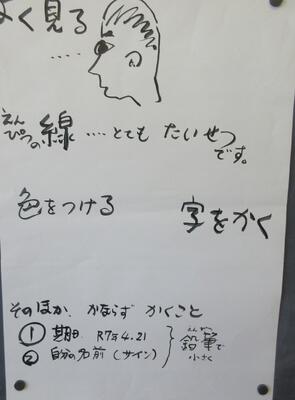 よく見る
‥‥
えんぴつの線 ‥‥ とても たいせつ
です。
色をつける 字をかく
そのほか、かならず かくこと
① 期日 R7年4.21
② 自分の名前(サイン)
鉛筆で
小さく